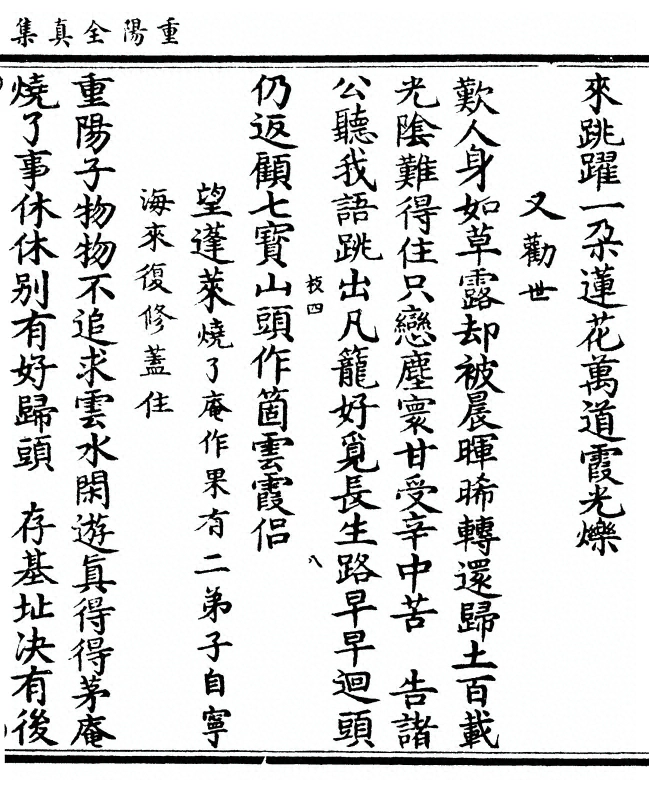 重陽全真集
來跳躍一朶蓮花萬道霞光爍
又勸世
歎人身如草露却被晨暉晞轉還歸土百載
光陰難得住只戀塵寰甘受辛中苦　告諸
公聽我語跳出凡籠好覓長生路早早迴頭
仍返顧七寳山頭作箇雲霞侣
望蓬萊燒了庵作果有二弟子自寧
海來復修蓋住
重陽子物物不追求雲水閑遊眞得得茅庵
燒了事休休别有好歸頭　存基址决有後